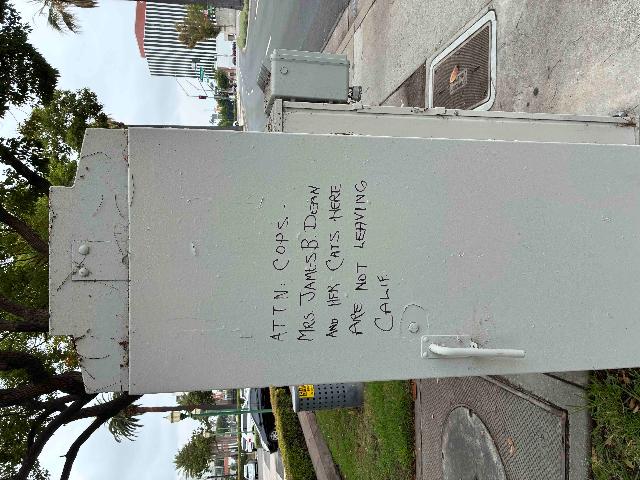 ATTN: COPS.
MRS. JAMES B. DEAN
AND HER CATS HERE
ARE NOT LEAVING
CALIF.